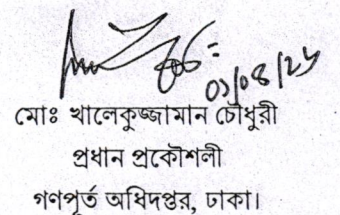 ০১/০৪/২৫
মোঃ খালেকুজ্জামান চৌধুরী
প্রধান প্রকৌশলী
গণপূর্ত অধিদপ্তর, ঢাকা।